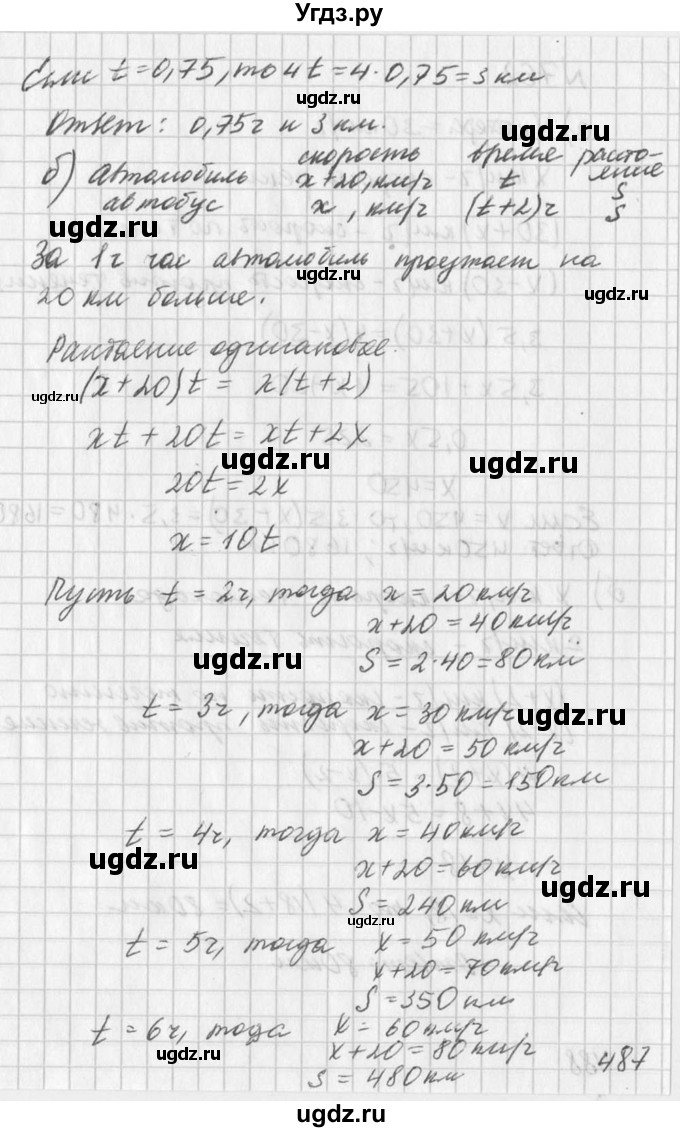 Угдз.ру
Если t=0,75, то 4t=4·0,75=3 км
ugdz.ru
Ответ: 0,75ч и 3 км.
ugdz.ru
скорость время расто-
б) автомобиль x+20, км/ч t яние S
автобус x, км/ч (t+2)ч S
За 1г час автомобиль проезжает на
20 км больше.
ugdz.ru
Растояние одинаковое.
ugdz.ru (x+20)t = x(t+2)
xt+20t=xt+2x
ugdz.ru ugdz.ru
20t=2x
x=10t
Пусть t=2ч, тогда x=20км/ч
x+20=40км/ч
ugdz.ru S=2·40=80км
t=3ч, тогда x=30км/ч
ugdz.ru
x+20=50км/ч
S=3·50=150км
t=4ч, тогда x=40км/ч
ugdz.ru
x+20=60км/ч
ugdz.ru
S=240км
ugdz.ru
t=5ч, тогда x=50км/ч
x+20=70км/ч
S=350км
t=6ч, тода x=60км/ч
ugdz.ru x+20=80км/ч
487
S=480км
ugdz.ru